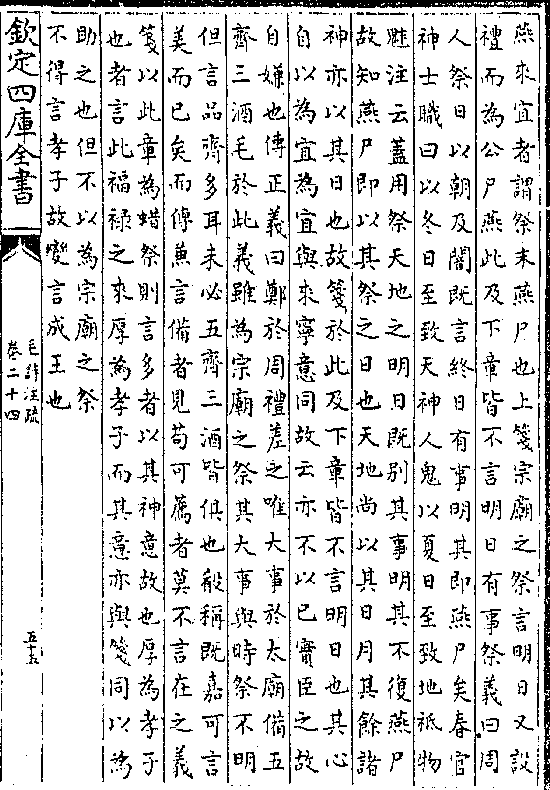 燕來宜者謂祭末燕尸也上箋宗廟之祭言明日又設
禮而為公尸燕此及下章皆不言明日有事祭義曰周
人祭日以朝及闇既言終日有事明其即燕尸矣春官
神士職曰以冬日至致天神人鬼以夏日至致地祗物
鬽注云蓋用祭天地之明日既別其事明其不復燕尸
故知燕尸即以其祭之日也天地尚以其日月其餘諸
神亦以其日也故箋於此及下章皆不言明日也其心
自以為宜為宜與來寧意同故云亦不以已實臣之故
自嫌也傳正義曰鄭於周禮差之唯大事於太廟備五
齊三酒毛於此義雖為宗廟之祭其大事與時祭不明
但言品齊多耳未必五齊三酒皆俱也般稱既嘉可言
美而已矣而傳兼言備者見苟可薦者莫不言在之義
箋以此章為蜡祭則言多者以其神意故也厚為孝子
也者言此福祿之來厚為孝子而其意亦與箋同以為
助之也但不以為宗廟之祭
不得言孝子故變言成王也
欽定四庫全書
毛詩注疏
卷二十四
五十五